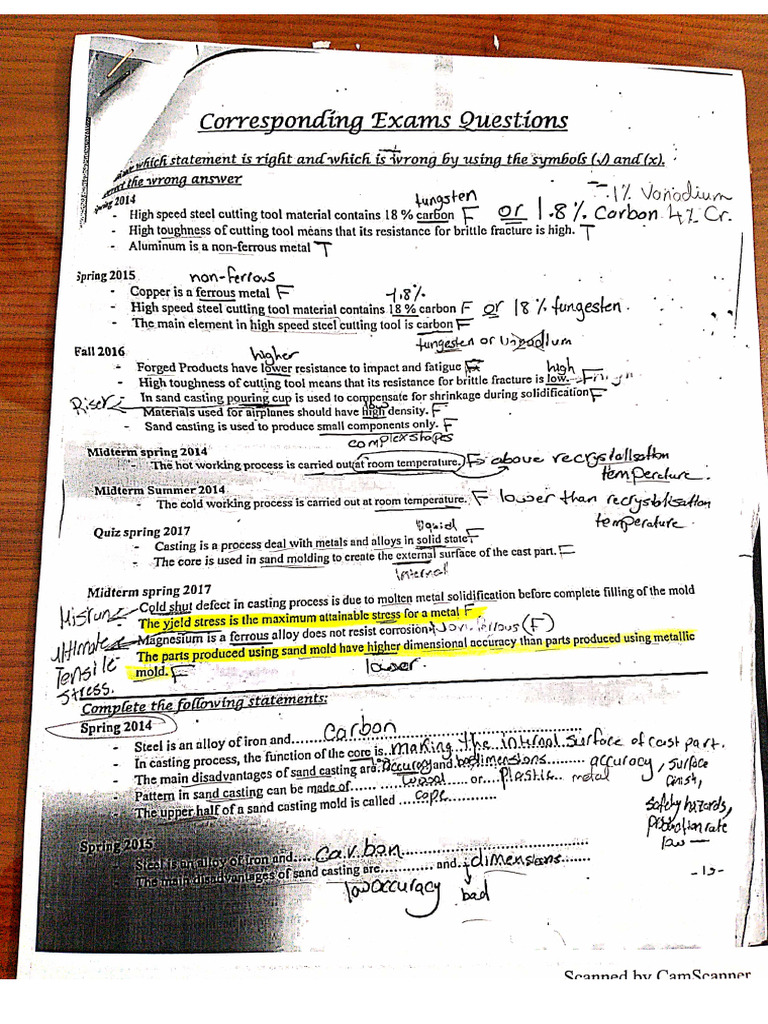 Corresponding Exams Questions
which statement is right and which is wrong by using the symbols (√) and (x).
the wrong answer
Spring 2014
tungsten
- 1% Vanadium
- High speed steel cutting tool material contains 18 % carbon F or 1.8% Carbon 4% Cr.
- High toughness of cutting tool means that its resistance for brittle fracture is high. T
- Aluminum is a non-ferrous metal T
Spring 2015
non-ferrous
- Copper is a ferrous metal F
1.8%
- High speed steel cutting tool material contains 18 % carbon F or 18 % tungesten.
- The main element in high speed steel cutting tool is carbon F
tungesten or
Fall 2016
higher
- Forged Products have lower resistance to impact and fatigue F
high
- High toughness of cutting tool means that its resistance for brittle fracture is low. F
Riser
- In sand casting pouring cup is used to compensate for shrinkage during solidification F
low
- Materials used for airplanes should have high density. F
- Sand casting is used to produce small components only. F
complex shapes
Midterm spring 2014
- The hot working process is carried out at room temperature. F above recrystallisation
temperature.
Midterm Summer 2014
- The cold working process is carried out at room temperature. F lower than recrystalisation
temperature.
Quiz spring 2017
liquid
- Casting is a process deal with metals and alloys in solid state F
- The core is used in sand molding to create the external surface of the cast part. F
internal
Midterm spring 2017
Misrun
- Cold shut defect in casting process is due to molten metal solidification before complete filling of the mold
- The yield stress is the maximum attainable stress for a metal F
ultimate Tensile stress.
- Magnesium is a ferrous alloy does not resist corrosion non ferrous (F)
- The parts produced using sand mold have higher dimensional accuracy than parts produced using metallic
mold. F
lower
Complete the following statements:
Spring 2014
- Steel is an alloy of iron and......carbon......
- In casting process, the function of the core is..making the internal surface of cast part.
- The main disadvantages of sand casting are. Accuracy and bad dimensions...... accuracy, surface finish,
- Pattern in sand casting can be made of ...... wood ...... or....plastic.. metal
- The upper half of a sand casting mold is called ....cope............
safety hazards,
rate
low
Spring 2015
- Steel is an alloy of iron and.....carbon......
- The main disadvantages of sand casting are............ and..dimensions.......
low accuracy
bad
-13-
Scanned by CamScanner